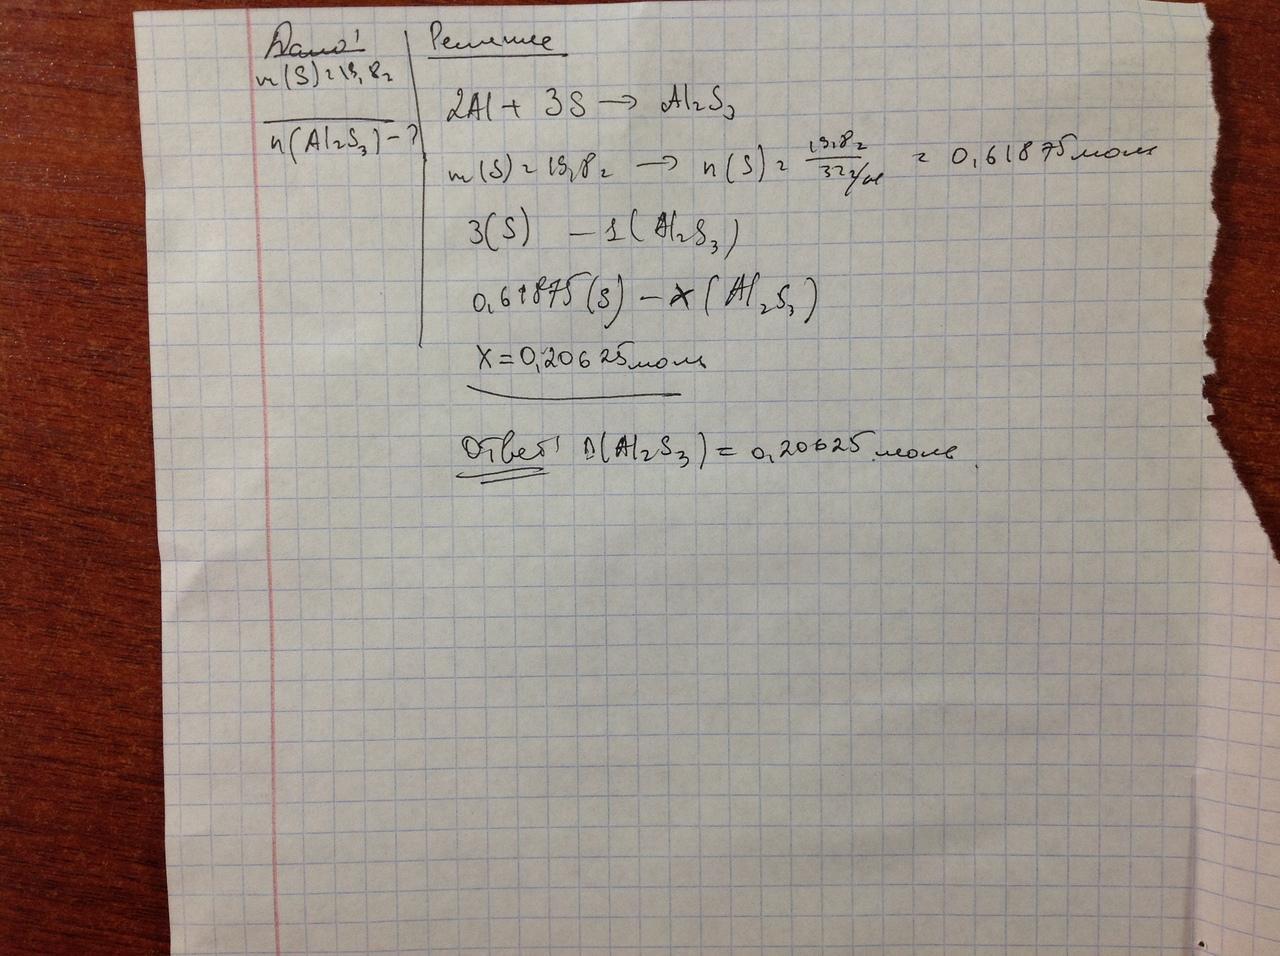 Дано:
m(S)=19,8г
n(Al₂S₃)-?
Решение
2Al + 3S → Al₂S₃
m(S)=19,8г → n(S)= 19,8г / 32г/моль = 0,61875моль
3(S) - 1(Al₂S₃)
0,61875(S) - x(Al₂S₃)
x=0,20625моль
Ответ: n(Al₂S₃)=0,20625 моль.